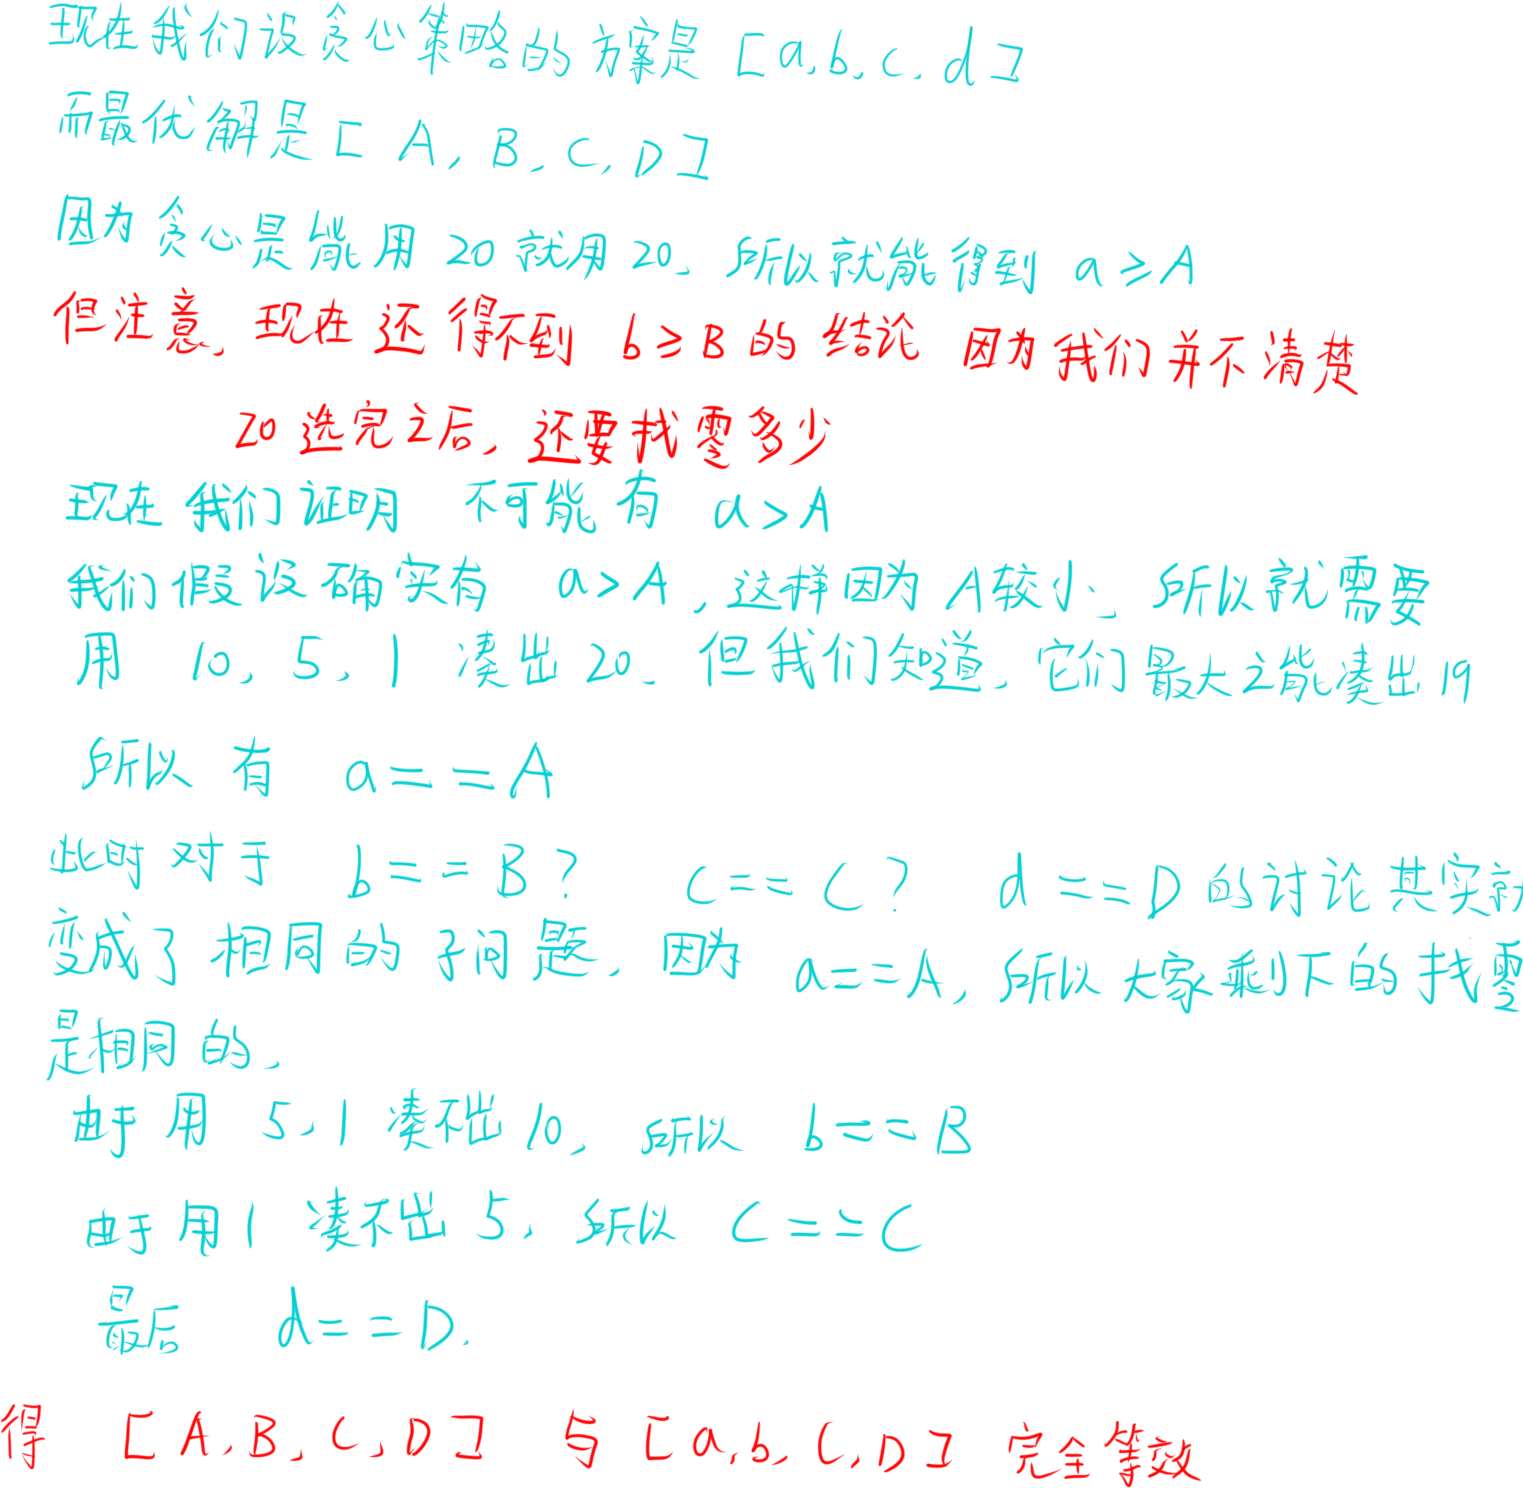 现在我们设贪心策略的方案是 [a,b,c,d]
而最优解是[ A, B, C, D ]
因为贪心是能用 20 就用 20, 所以就能得到 a≥A
但注意, 现在还得不到 b≥B 的结论 因为我们并不清楚
20 选完之后, 还要找零多少
现在我们证明 不可能有 a>A
我们假设确实有 a>A, 这样因为 A较小, 所以就需要
用 10, 5, 1 凑出 20. 但我们知道, 它们最大之能凑出 19
所以有 a==A
此时对于 b==B? c==C? d==D 的讨论其实就
变成了相同的子问题, 因为 a==A, 所以大家剩下的找零
是相同的,
由于用 5,1 凑不出 10, 所以 b==B
由于用1 凑不出 5, 所以 C==C
最后 d==D.
得 [A,B,C,D] 与 [a,b,C,D] 完全等效